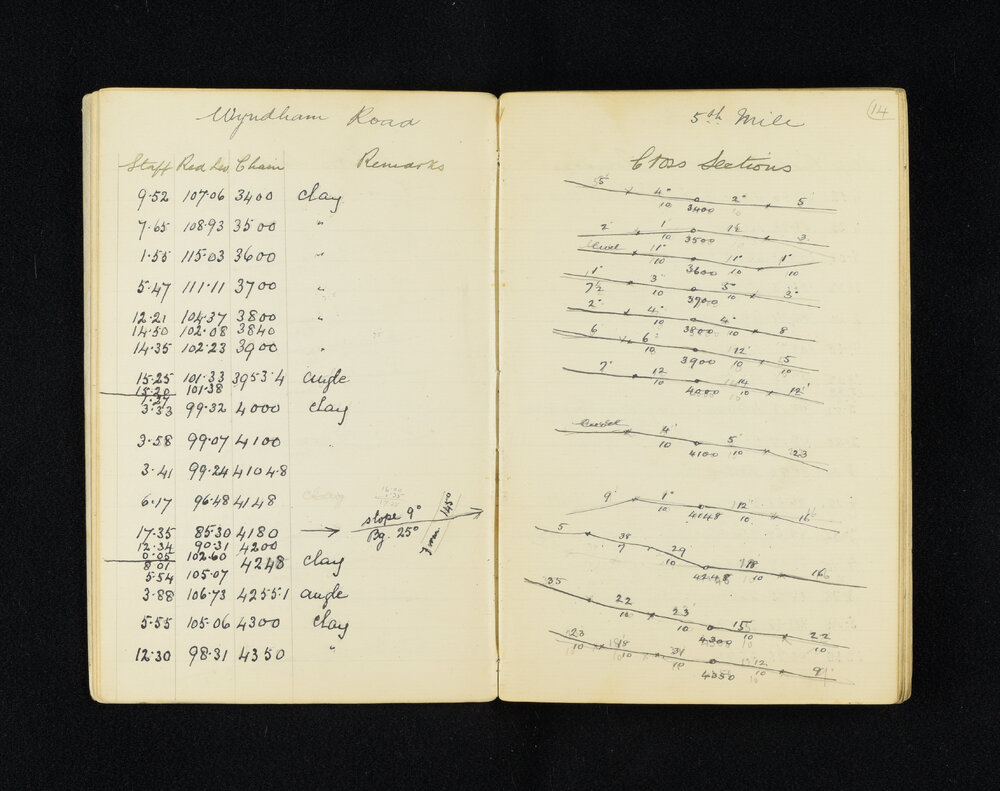 Wyndham Road
Staff Red Lev Chain Remarks
9.52 107.06 3400 clay
7.65 108.93 3500 "
1.55 115.03 3600 "
5.47 111.11 3700 "
12.21 104.37 3800 "
14.50 102.08 3840
14.35 102.23 3900 "
15.25 101.33 3953.4 angle
15.20 101.38
1.27
3.33 99.32 4000 clay
3.58 99.07 4100
3.41 99.24 4104.8
6.17 96.48 4148 clay
slope 9° 145°
17.35 85.30 4180 Bg. 25°
12.34 90.31 4200
0.05 102.60
8.01 4248 clay
5.54 105.07
3.88 106.73 4255.1 angle
5.55 105.06 4300 clay
12.30 98.31 4350 "
14
5th Mile
Cross Sections
5 4° 2° 5
10 3400 10
2 1 1½ 3
10 3500
level 11° 11° 1°
10 3600 10 10
1° 3 5° 3°
7½ 10 3700 10
2° 4° 4° 8
10 3800 10
6 6 12 15
10 3900 10 10
7 12 14 12
10 4000 10
level 4 5 23
10 4100 10
9 1° 12 16
10 4048 10
5 38 29 18 16
7 10 4248 10
35 22 23 15 22
10 10 4300 10 10
23 18 31 12 9
10 10 10 4350 10